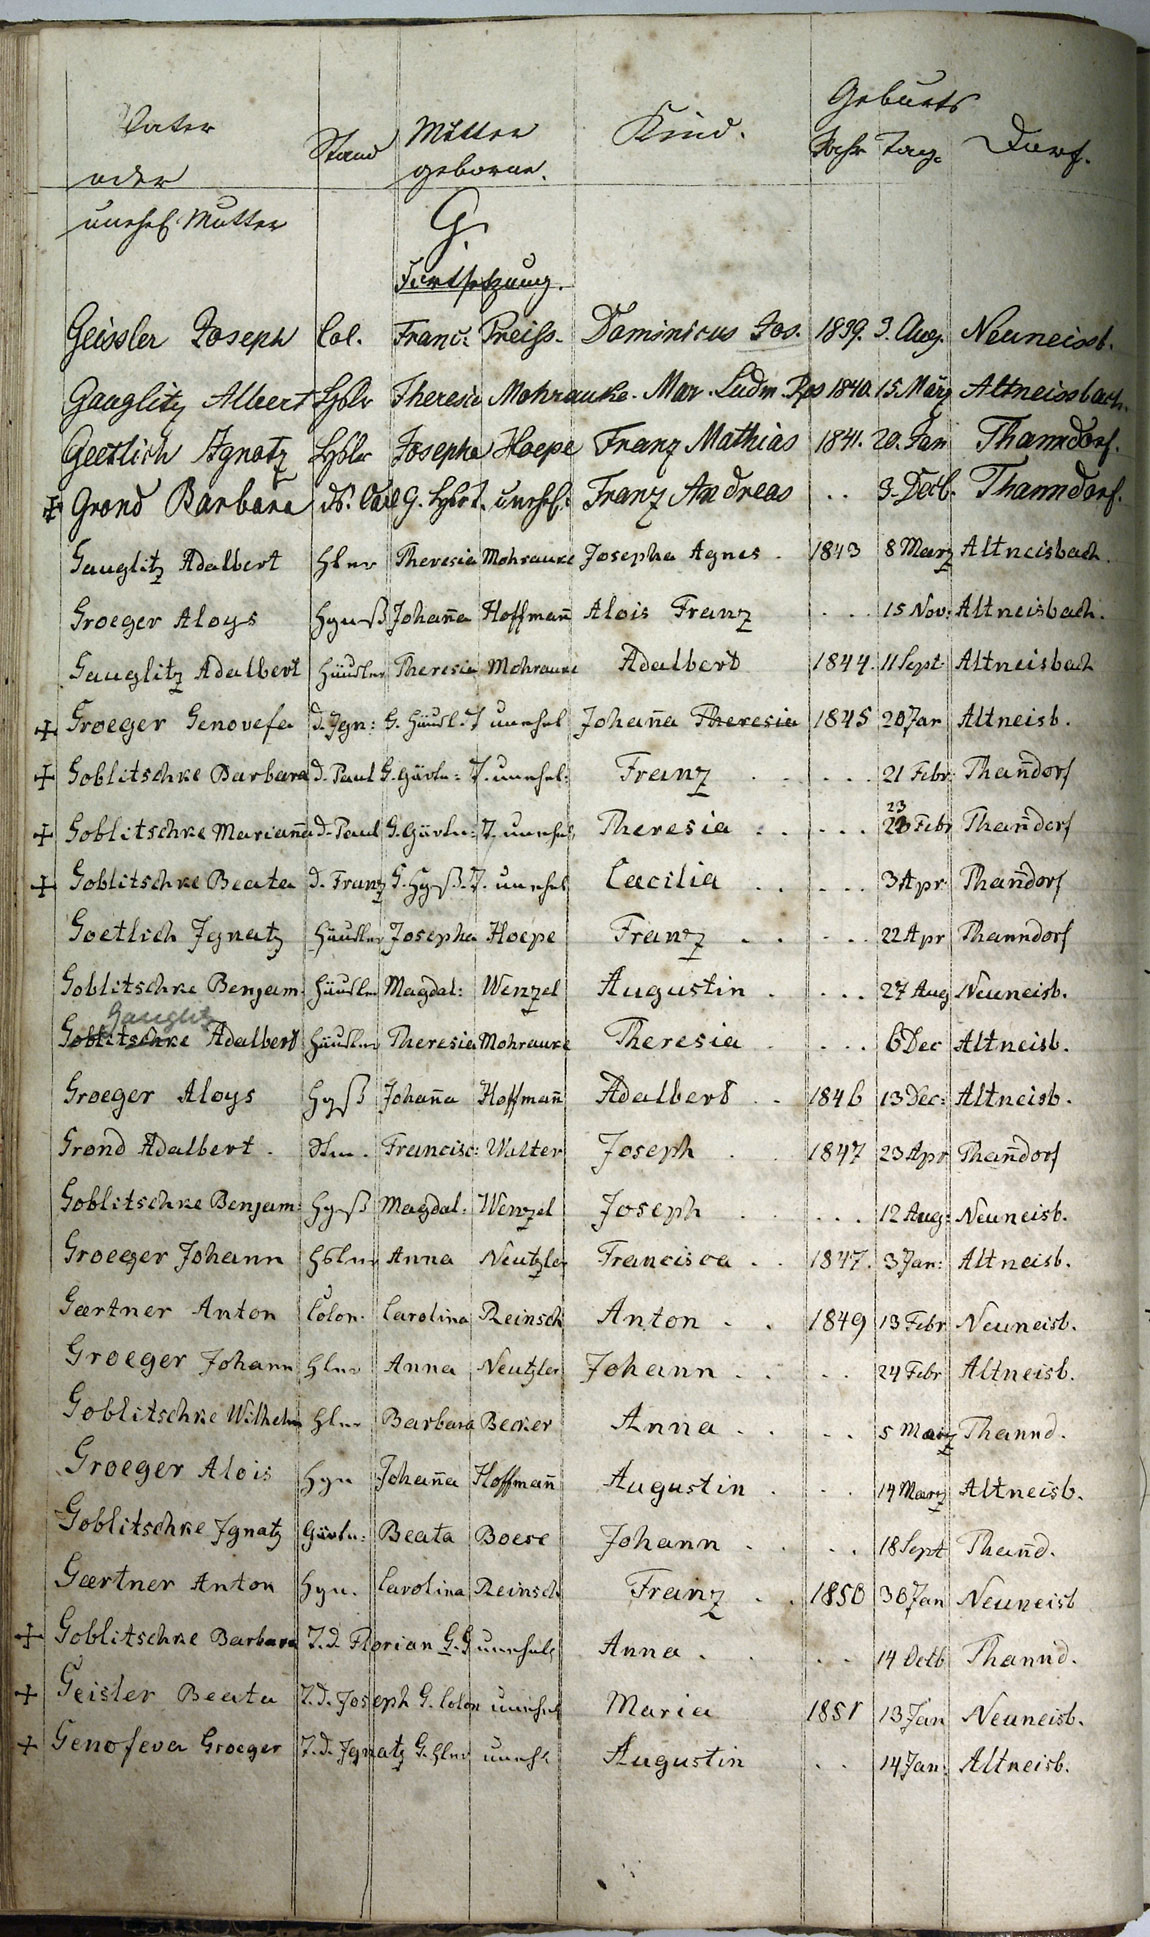 Vater
oder
unehl. Mutter
Stand
Mutter
geborne.
Kind.
Geburts
Jahr Tag.
Dorf.
G.
Fortsetzung.
Geissler Joseph Col. Franc: Preiss. Dominicus Jos. 1839. 3. Aug. Neuneissb.
Gauglitz Albert Theresia Mohrauke. Mar. Ludm. Ros 1840. 15. März Altneissbach.
Goetlich Ignatz Josepha Hoepe Franz Mathias 1841. 20. Jan Thanndorf.
+ Grond Barbara d. Carl G. unehl: Franz Andreas . . 3. Octb. Thanndorf.
Gauglitz Adalbert Hlrr Theresia Mohrauke Josepha Agnes . 1843 8 Marz Altneisbach.
Groeger Aloys Johana Hoffman Alois Franz . . . 15 Nov: Altneisbach.
Gauglitz Adalbert Häusler Theresia Mohrauke Adalbert 1844. 11 Sept Altneisbach
+ Groeger Genovefa d. Ign: G. Häusl. T unehel Johana Theresia 1845 20 Jar Altneisb.
+ Goblitschke Barbara d. Paul G. Gärtn: T. unehel: Franz . . . . . 21 Febr: Thandorf
+ Goblitschke Mariana d. Paul G. Gärtn: T. unehel Theresia . . . . . 23 Febr Thandorf
+ Goblitschke Beata d. Franz G. T. unehel Cacilia . . . . . 3 Apr Thandorf
Goetlich Jgnatz Häusler Josepha Hoepe Franz . . . . . 22 Apr Thanndorf
Goblitschke Benjam: Häusler Magdal: Wenzel Augustin . . . . 27 Aug Neuneisb.
Gauglitz
Goblitschke Adalbert Häusler Theresia Mohrauke Theresia . . . . 6 Dec Altneisb.
Groeger Aloys Johana Hoffman Adalbert . . 1846 13 Dec: Altneisb.
Grond Adalbert . Francisc: Walter Joseph . . 1847 23 Apr Thandorf
Goblitschke Benjam: Magdal: Wenzel Joseph . . . . . 12 Aug: Neuneisb.
Groeger Johann Anna Neutzler Francisca . . 1847. 3 Jan: Altneisb.
Gærtner Anton Colon. Carolina Reinsch Anton . . 1849 13 Febr Neuneisb.
Groeger Johann Anna Neutzler Johann . . . . 24 Febr Altneisb.
Goblitschke Wilhelm Barbara Becker Anna . . . . 5 Marz Thannd.
Groeger Alois Johana Hoffman Augustin . . . 14 Marz Altneisb.
Goblitschke Jgnatz Gärtn: Beata Boese Johann . . . . 18 Sept Thand.
Gærtner Anton Carolina Reinsch Franz . . 1850 30 Jan Neuneisb
+ Goblitschke Barbara T. d. Florian G. G unehel Anna . . . . 14 Octb Thannd.
+ Geisler Beata T. d. Joseph G. Colon unehel Maria 1851 13 Jan Neuneisb.
+ Genofeva Groeger T. d. Jgnatz G. unehl Augustin . . 14 Jan: Altneisb.